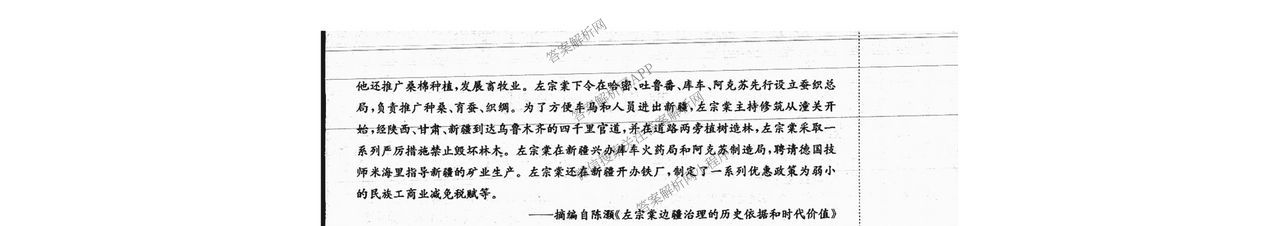 他还推广桑棉种植,发展畜牧业。左宗棠下令在哈密、吐鲁番、库车、阿克苏先行设立蚕织总
局,负责推广种桑、育蚕、织绸。为了方便车马和人员进出新疆,左宗棠主持修筑从潼关开
始,经陕西、甘肃、新疆到达乌鲁木齐的四千里官道,并在道路两旁植树造林,左宗棠采取一
系列严厉措施禁止毁坏林木。左宗棠在新疆兴办库车火药局和阿克苏制造局,聘请德国技
师米海里指导新疆的矿业生产。左宗棠还在新疆开办铁厂,制定了一系列优惠政策为弱小
的民族工商业减免税赋等。
——摘编自陈灏《左宗棠边疆治理的历史依据和时代价值》
答案解析网
答案解析网APP
微信搜索关注答案解析网
答案解析网小程序